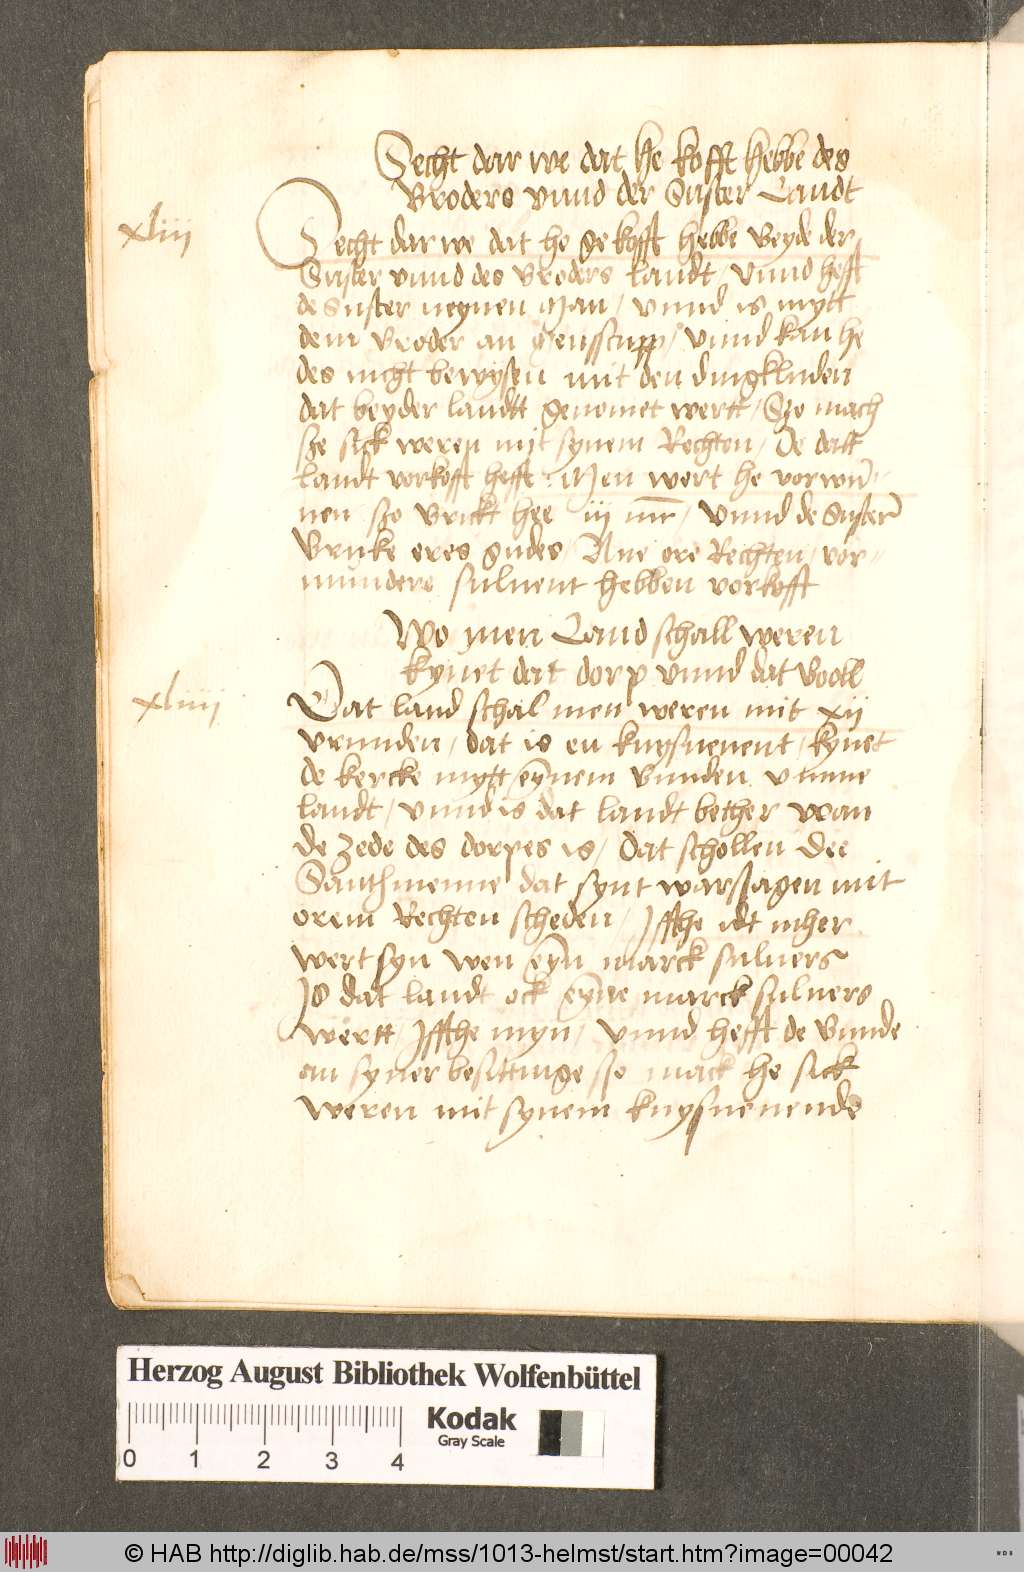 Secht dar we dat he kofft hebbe des
Broders vnnd der Suster Landt
xliii
Secht dar we dat he ge kofft hebbe beyde der
Suster vnnd des broders landt / vnnd hefft
de Suster neynen man / vnnd is mytt
dem broder an / vnnd kan he
des nicht bewysen mit den dingkluden
dat beyder landtt genomet wertt / Sze mach
sze sick weren mit synem Rechten / De datt
landt vorkofft hefft / Men wert he vorwū
nen sze brickt hee iij mr / vnnd de Suster
bruke eres gudes / Ane ere Rechten / vor
mundere suluent hebben vorkofft
Wo men Land schall weren
kynet dat dorp vnnd dat
xliiii
Dat land schal men weren mit xij
vrunden / dat is en knysuenent / kynet
de kercke mytt eȳnem bunden vmme
landt / vnnd is dat landt bether wan
de zede des dorpes is / dat schollen dee
Santhmenne dat synt warsagen mit
orem Rechten scheden / Iffthe idt mher
wert syn wen eȳn marck suluers
Is dat landt ock eȳne marck suluers
wertt Iffthe myn / vnnd hefft de bunde
an syner besittinge sse mack he sick
weren mit synem knysuenende
Herzog August Bibliothek Wolfenbüttel
Kodak
Gray Scale
0 1 2 3 4
© HAB http://diglib.hab.de/mss/1013-helmst/start.htm?image=00042